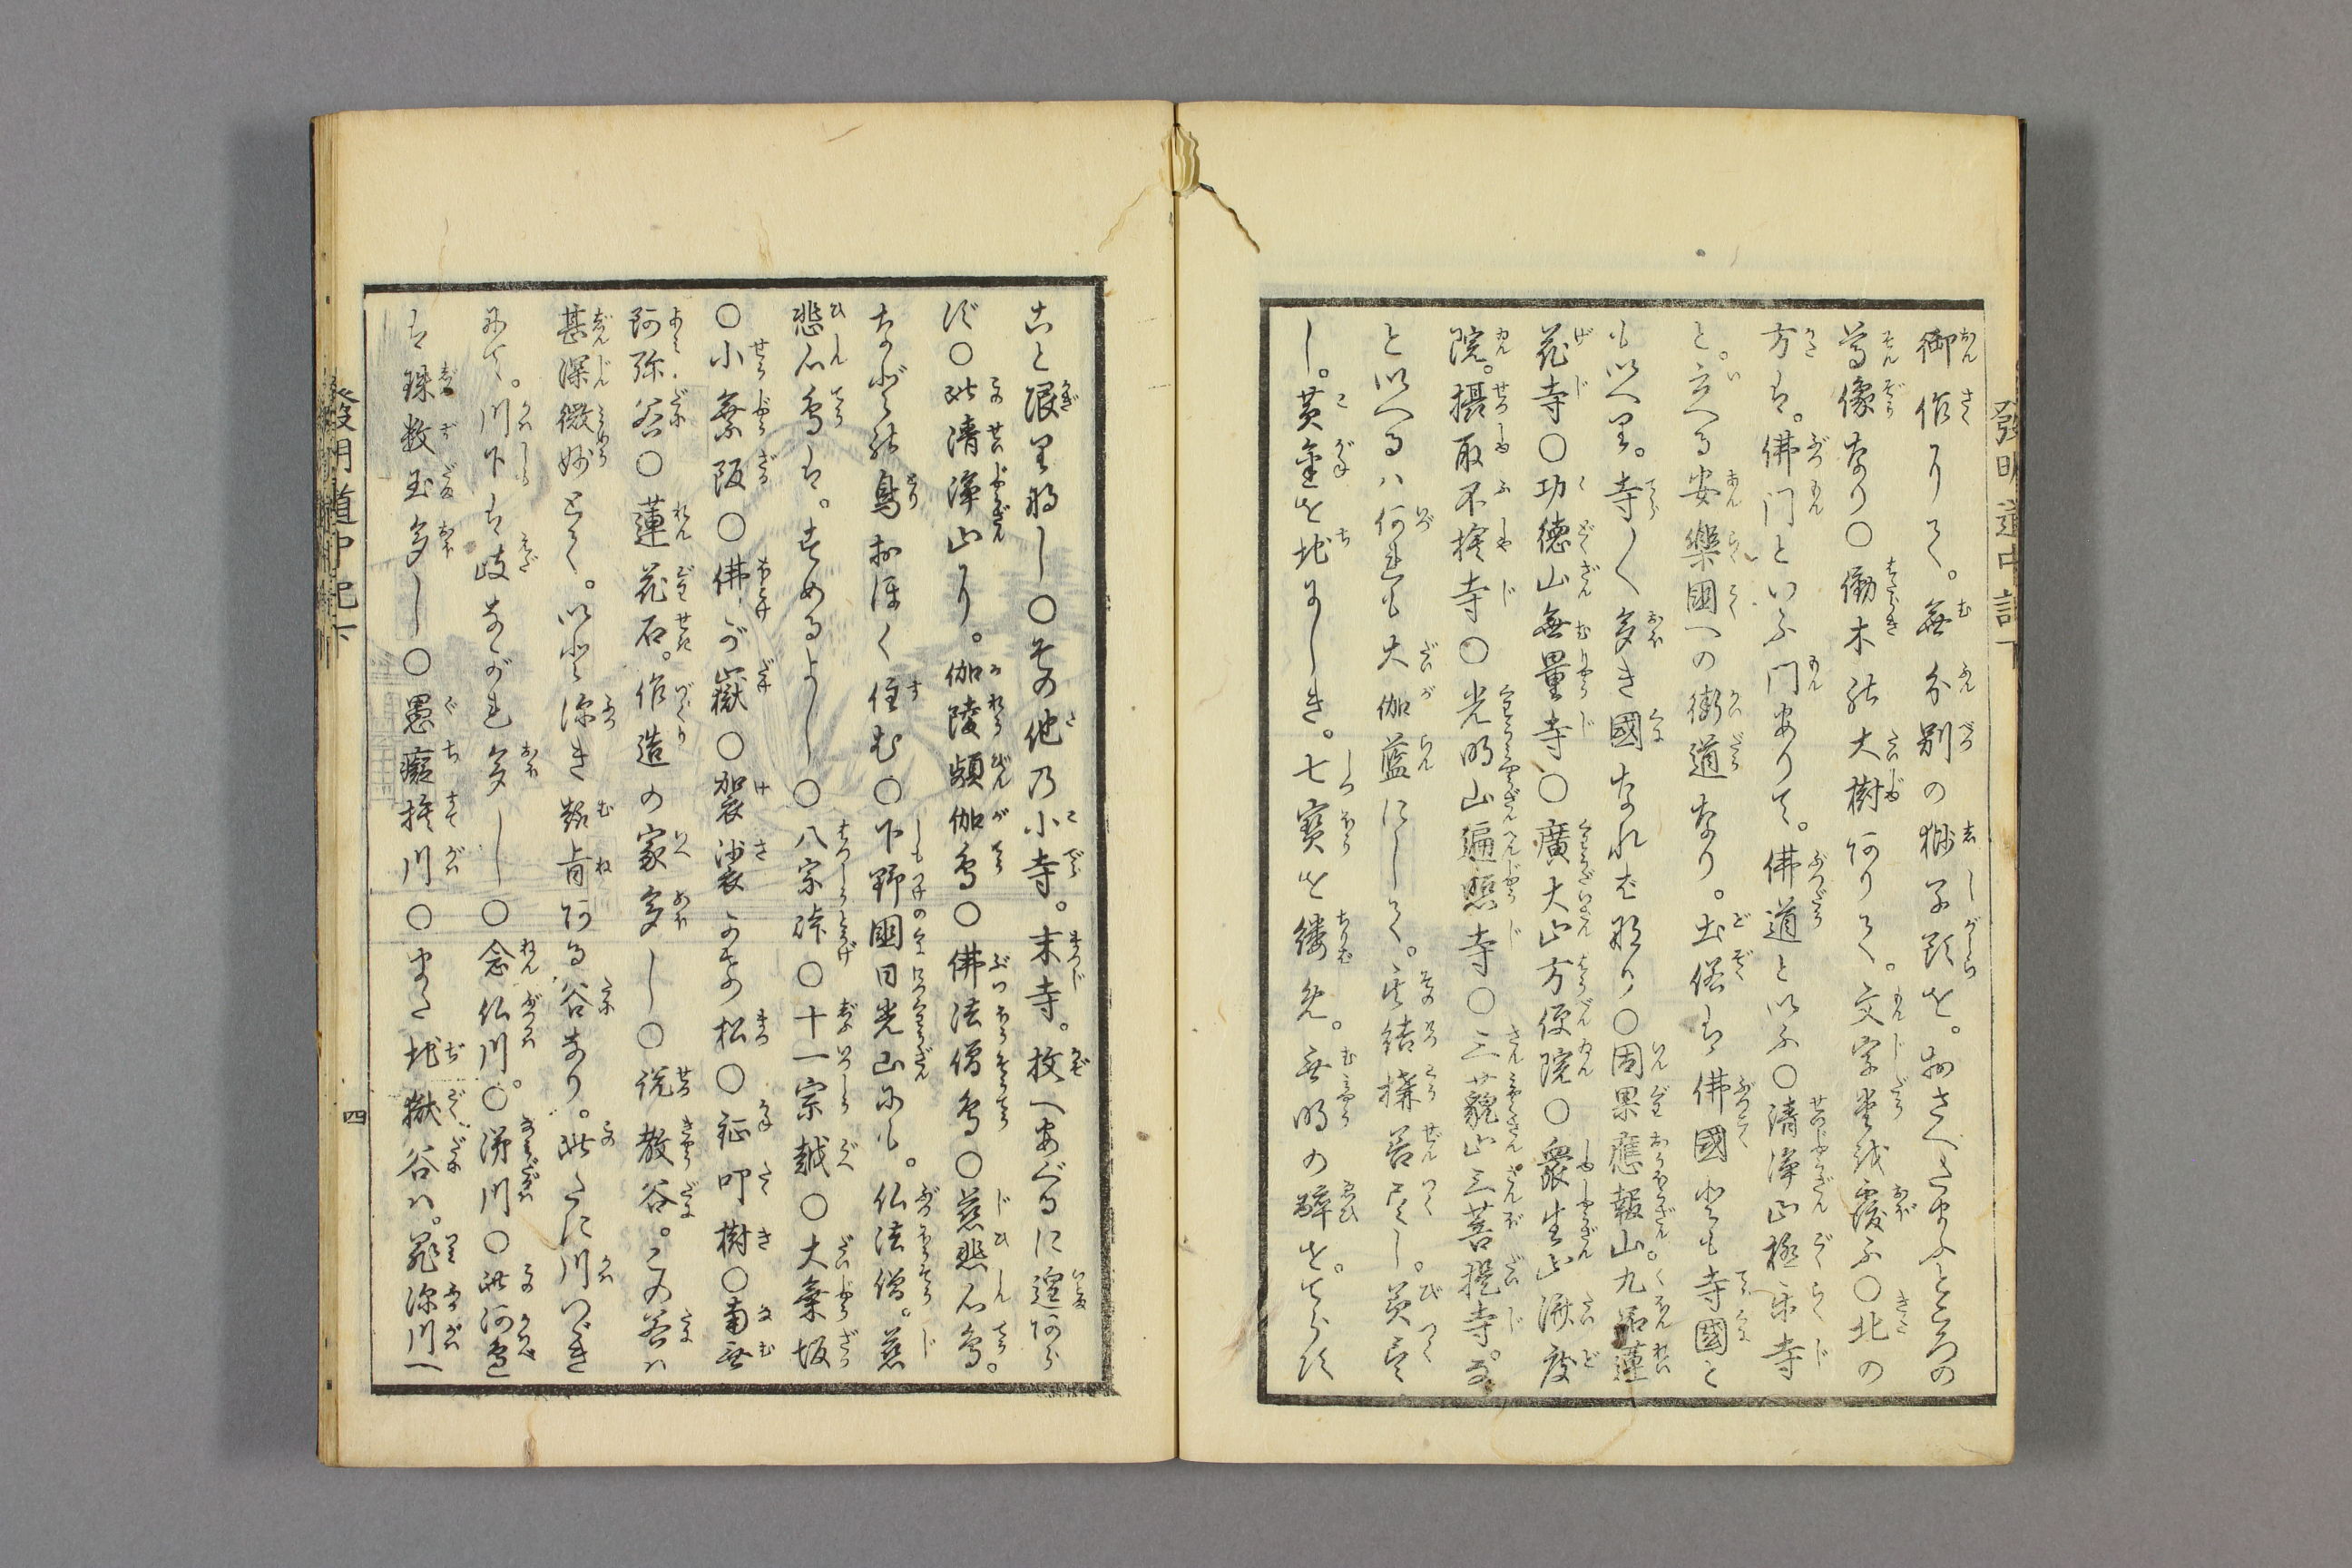 發明道中記下
御作りて。無分別の獅子頭を。おさへたまふところの
尊像なり○働木の大樹ありて。文字堂を覆ふ○北の
方は。佛門といふ門ありて。佛道といふ○清浄山極楽寺
と。いへる安樂國への街道なり。土俗は佛國とも寺國と
もいへり。寺〳〵多き國なればなり○因果應報山。九品蓮
花寺○功徳山無量寺○廣大山方便院○衆生山済度
院。摂取不捨寺○光明山遍照寺○三藐山三菩提寺。な
どいへるハ何れも大伽藍にして。其結構善尽し。美尽
し。黄金を地にしき。七寳を鏤め。無明の酔を
こと限りなし○その他の小寺。末寺。枚へあぐるに遑あら
ず○此清浄山に。伽陵頻伽鳥○佛法僧鳥○慈悲心鳥。
などの鳥おほく住む○下野國日光山にも。仏法僧。慈
悲心鳥は。すめるよし○八宗峠○十一宗越○大乗坂
○小乗阪○佛が嶽○袈裟かけ松○鉦叩樹○南無
阿弥谷○蓮花石。作造の家多し○説教谷。この谷ハ
甚深微妙とて。いと深き宗旨ある谷なり。此たに川つゞき
にて。川下は岐ながれ多し○念仏川。○涕川○此河邊
は珠数玉多し○愚癡捨川○また地獄谷ハ。罪深川へ
發明道中記下
四